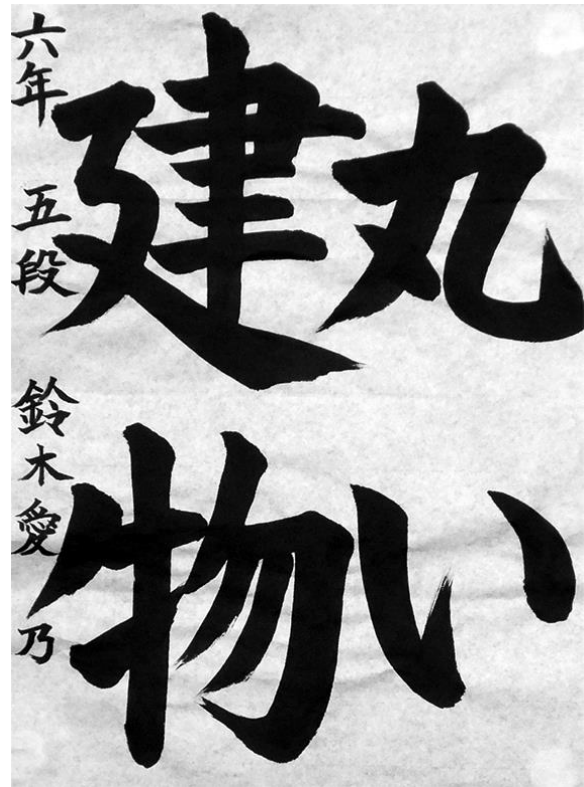 丸い
建物
六年 五段 鈴木愛乃